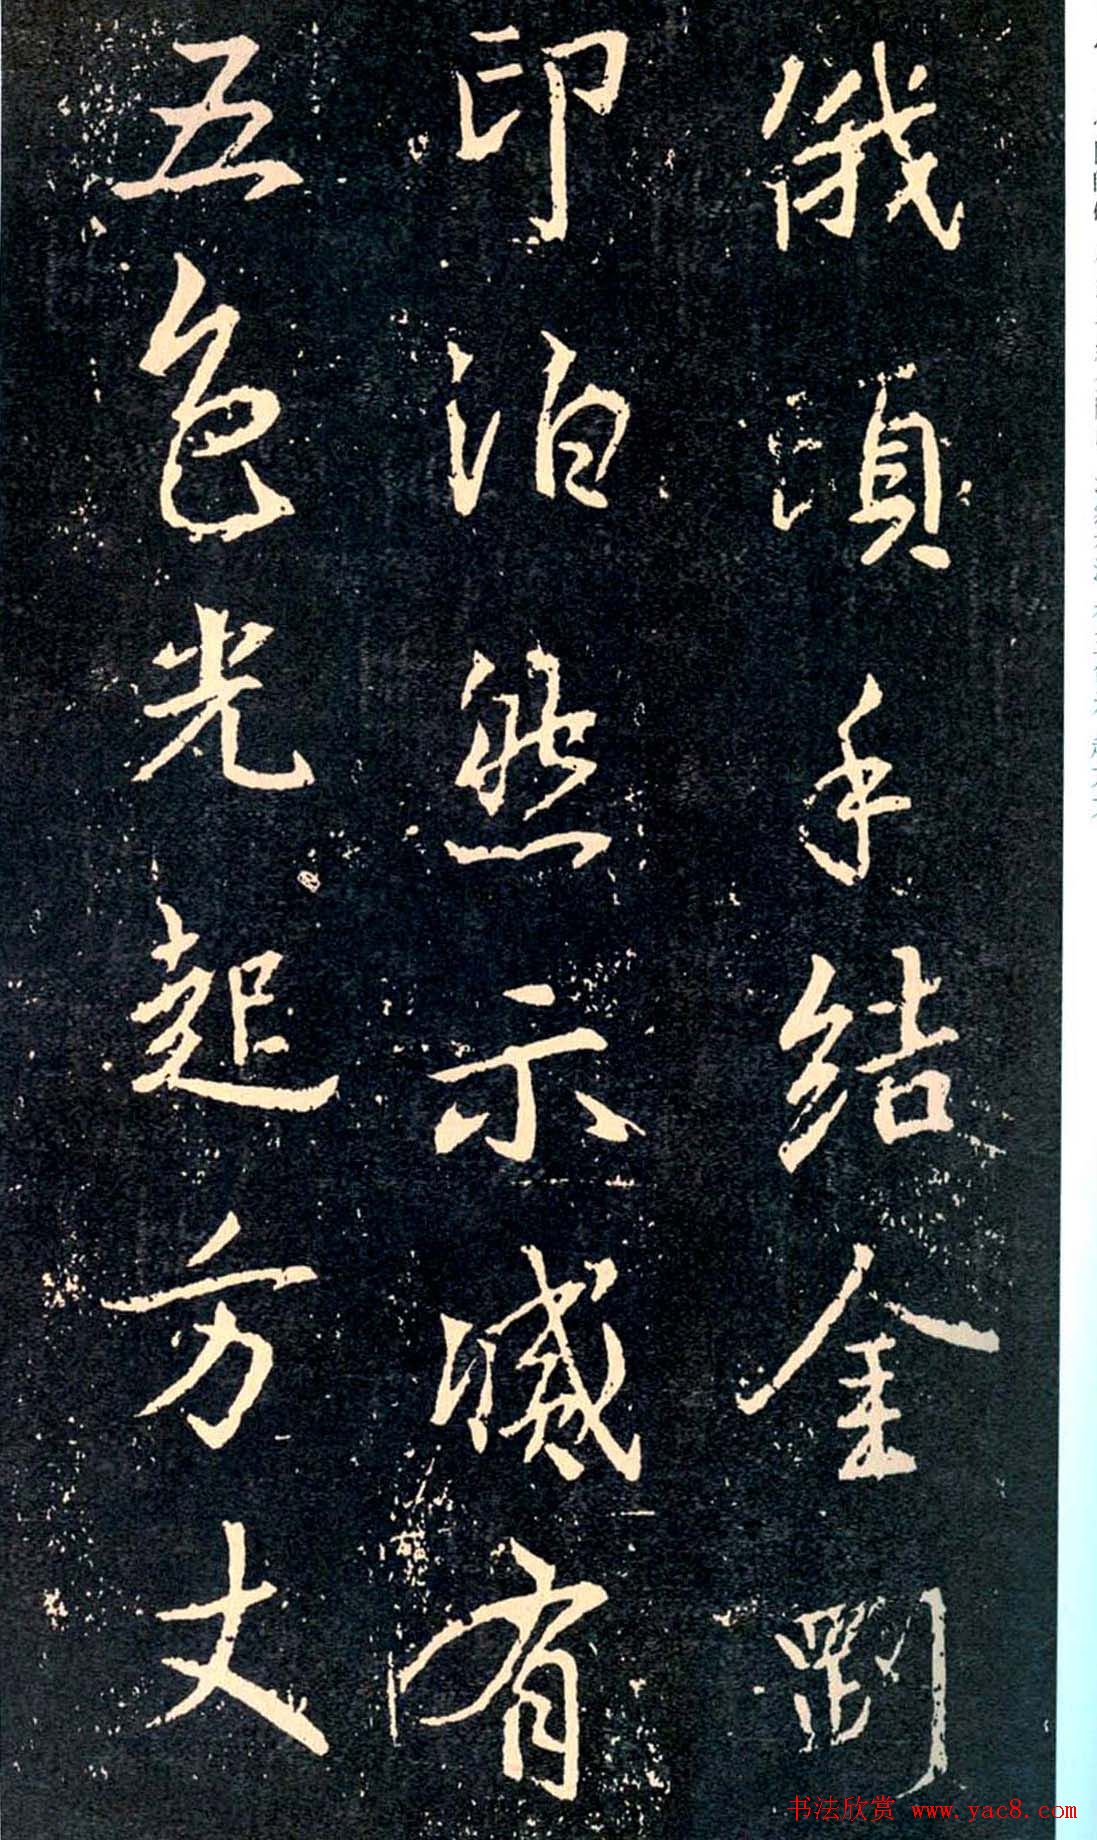 俄頃手結金剛
印泊然示滅有
五色光起方丈
书法欣赏 www.yac8.com